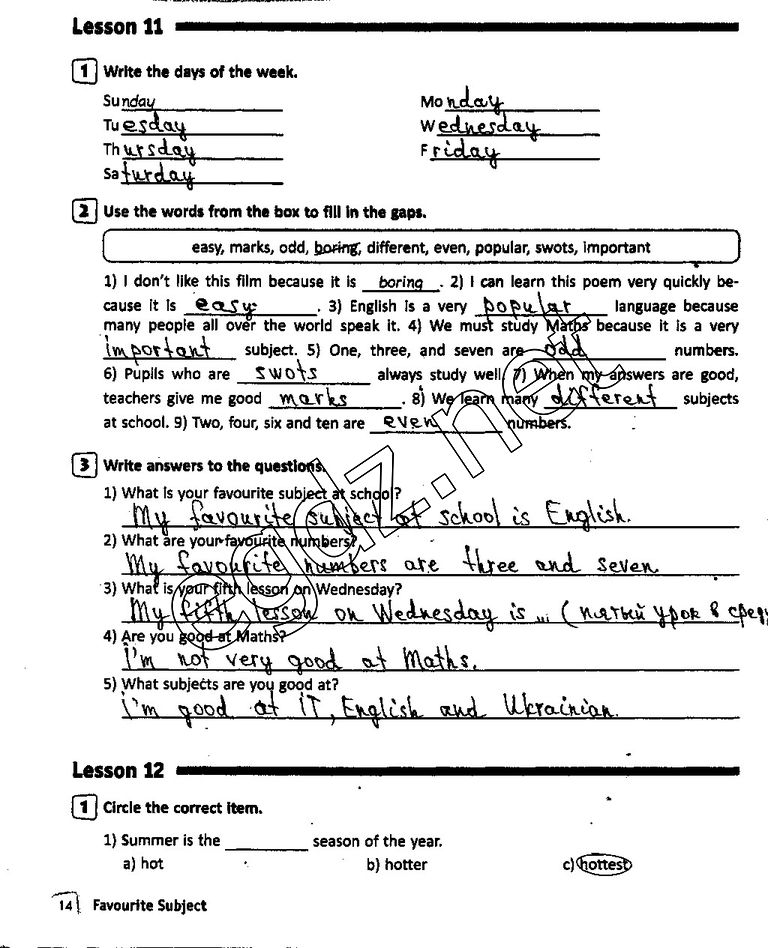 Lesson 11
1 Write the days of the week.
Sunday Monday
Tuesday Wednesday
Thursday Friday
Saturday
2 Use the words from the box to fill in the gaps.
easy, marks, odd, boring, different, even, popular, swots, important
1) I don't like this film because it is boring. 2) I can learn this poem very quickly be-
cause it is easy. 3) English is a very popular language because
many people all over the world speak it. 4) We must study Maths because it is a very
important subject. 5) One, three, and seven are odd numbers.
6) Pupils who are swots always study well. 7) When my answers are good,
teachers give me good marks. 8) We learn many different subjects
at school. 9) Two, four, six and ten are even numbers.
3 Write answers to the questions.
1) What is your favourite subject at school?
My favourite subject at school is English.
2) What are your favourite numbers?
My favourite numbers are three and seven.
3) What is your fifth lesson on Wednesday?
My fifth lesson on Wednesday is ... (пятый урок в сред
4) Are you good at Maths?
I'm not very good at Maths.
5) What subjects are you good at?
I'm good at IT, English and Ukrainian.
Lesson 12
1 Circle the correct item.
1) Summer is the ________ season of the year.
a) hot b) hotter c) hottest
14 Favourite Subject